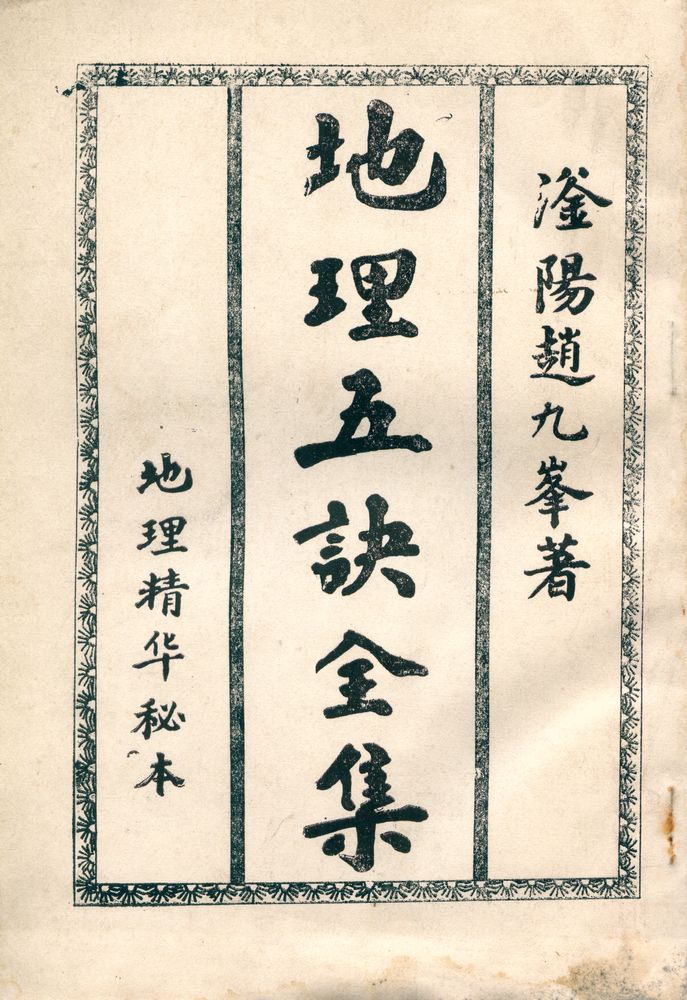 滏陽趙九峯著
地理五訣全集
地理精华秘本